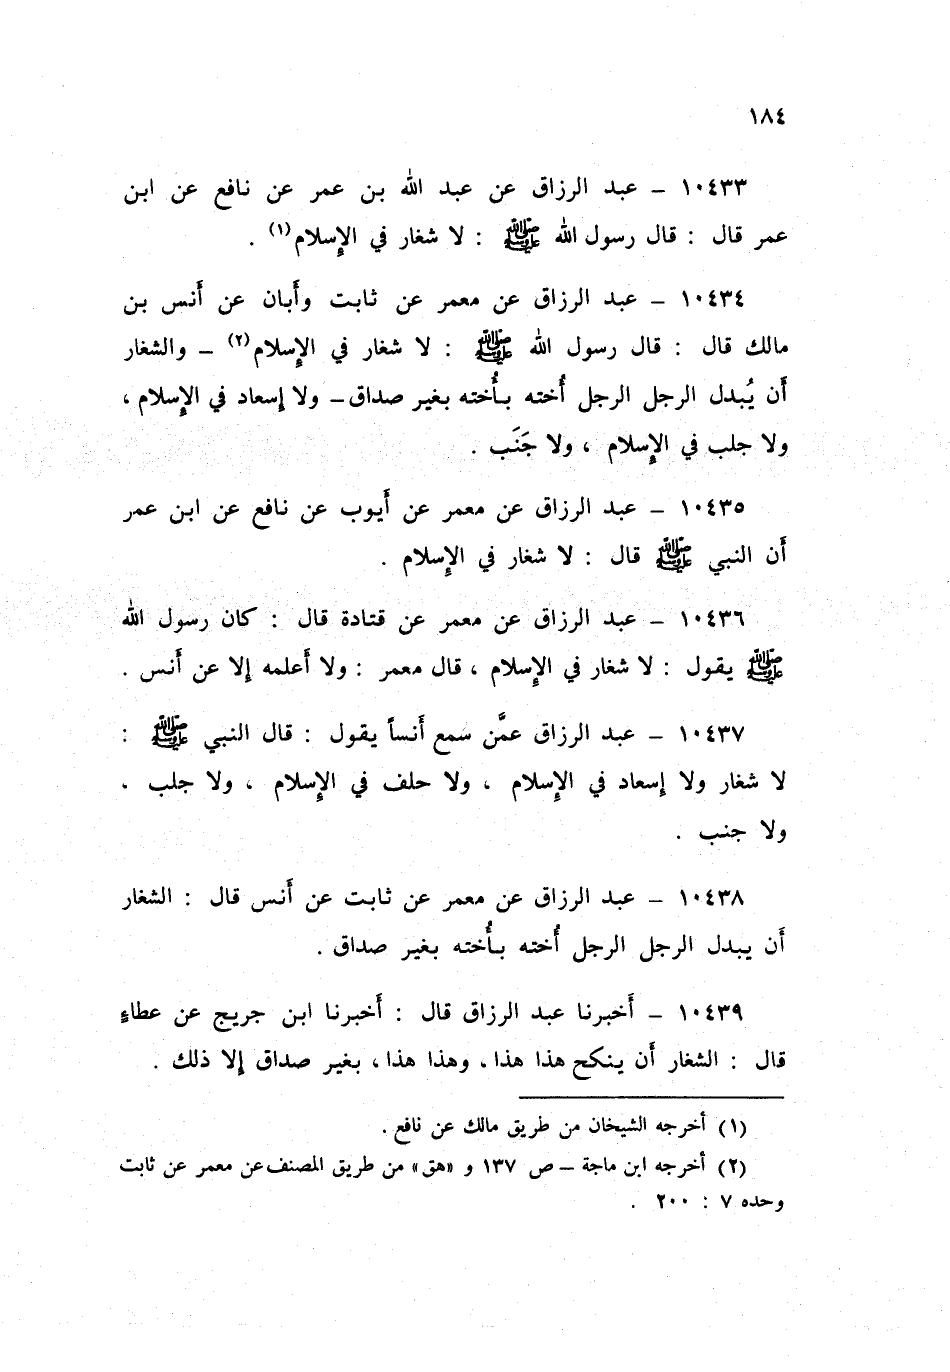 ١٨٤
١٠٤٣٣ – عبد الرزاق عن عبد الله بن عمر عن نافع عن ابن
عمر قال : قال رسول الله ﷺ : لا شغار في الإِسلام(١) .
١٠٤٣٤ – عبد الرزاق عن معمر عن ثابت وأَبان عن أَنس بن
مالك قال : قال رسول الله ﷺ : لا شغار في الإِسلام(٢) – والشغار
أَن يُبدل الرجل الرجل أُخته بأُخته بغير صداق – ولا إِسعاد في الإِسلام ،
ولا جلب في الإِسلام ، ولا جَنَب .
١٠٤٣٥ – عبد الرزاق عن معمر عن أَيوب عن نافع عن ابن عمر
أَن النبي ﷺ قال : لا شغار في الإِسلام .
١٠٤٣٦ – عبد الرزاق عن معمر عن قتادة قال : كان رسول الله
ﷺ يقول : لا شغار في الإِسلام ، قال معمر : ولا أَعلمه إِلا عن أَنس .
١٠٤٣٧ – عبد الرزاق عمَّن سمع أَنساً يقول : قال النبي ﷺ :
لا شغار ولا إِسعاد في الإِسلام ، ولا حلف في الإِسلام ، ولا جلب .
ولا جنب .
١٠٤٣٨ – عبد الرزاق عن معمر عن ثابت عن أَنس قال : الشغار
أَن يبدل الرجل الرجل أُخته بأُخته بغير صداق .
١٠٤٣٩ – أَخبرنا عبد الرزاق قال : أَخبرنا ابن جريج عن عطاءٍ
قال : الشغار أَن ينكح هذا هذا . وهذا هذا ، بغير صداق إِلا ذلك .
(١) أخرجه الشيخان من طريق مالك عن نافع .
(٢) أخرجه ابن ماجة – ص ١٣٧ و «هق» من طريق المصنف عن معمر عن ثابت
وحده ٧ : ٢٠٠ .